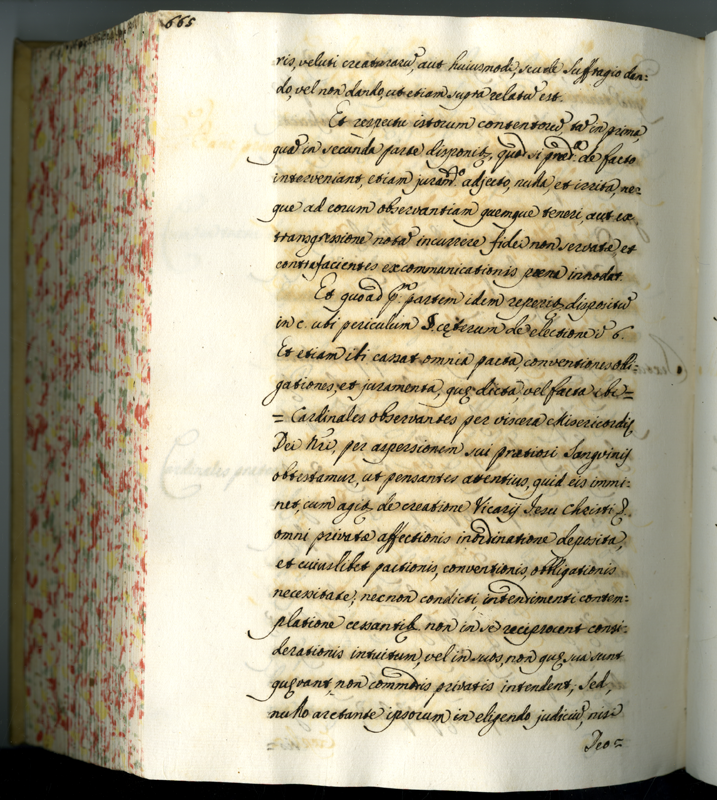 665
ris, veluti creaturarũ, aut huiusmodi, seu de suffragio dan=
do, vel non dando, ut etiam supra relatũ est.
Et respectu istorum contentorũ tã in prima,
quã in secunda parte disponit, quod si præd.ª de facto
interveniant, etiam juram.º adjecto, nulla, et irrita, ne=
que ad eorum observantiam quemque teneri, aut ex
transgressione notã incurrere fidei non servatæ et
contrafacientes excommunicationis pœna innodat.
Et quoad p.ᵃᵐ partem idem reperit dispositũ
in c. ubi periculum §. cęterum de electione in 6.
Et etiam ibi cassat omnia pacta, conventiones obli=
gationes, et juramenta, quę dicta vel facta ibi=
= Cardinales observantes per viscera Misericordię
Dei nr̃i, per aspersionem sui pretiosi Sanguinis
obtestamur, ut pensantes attentius, quid eis immi=
net, cum agit de creatione Vicarij Iesu Christi &.
omni privatæ affectionis inordinatione deposita,
et cuiuslibet pactionis, conventionis, obbligationis
necessitate, necnon condicti, intendimenti contem=
platione cessantib. non in se reciprocent consi=
derationis intuitum, vel in suos, non quę sua sunt
quęrant, non commodis privatis intendent; Sed,
nullo arctante ipsorum in eligendo judiciũ, nisi
Deo=